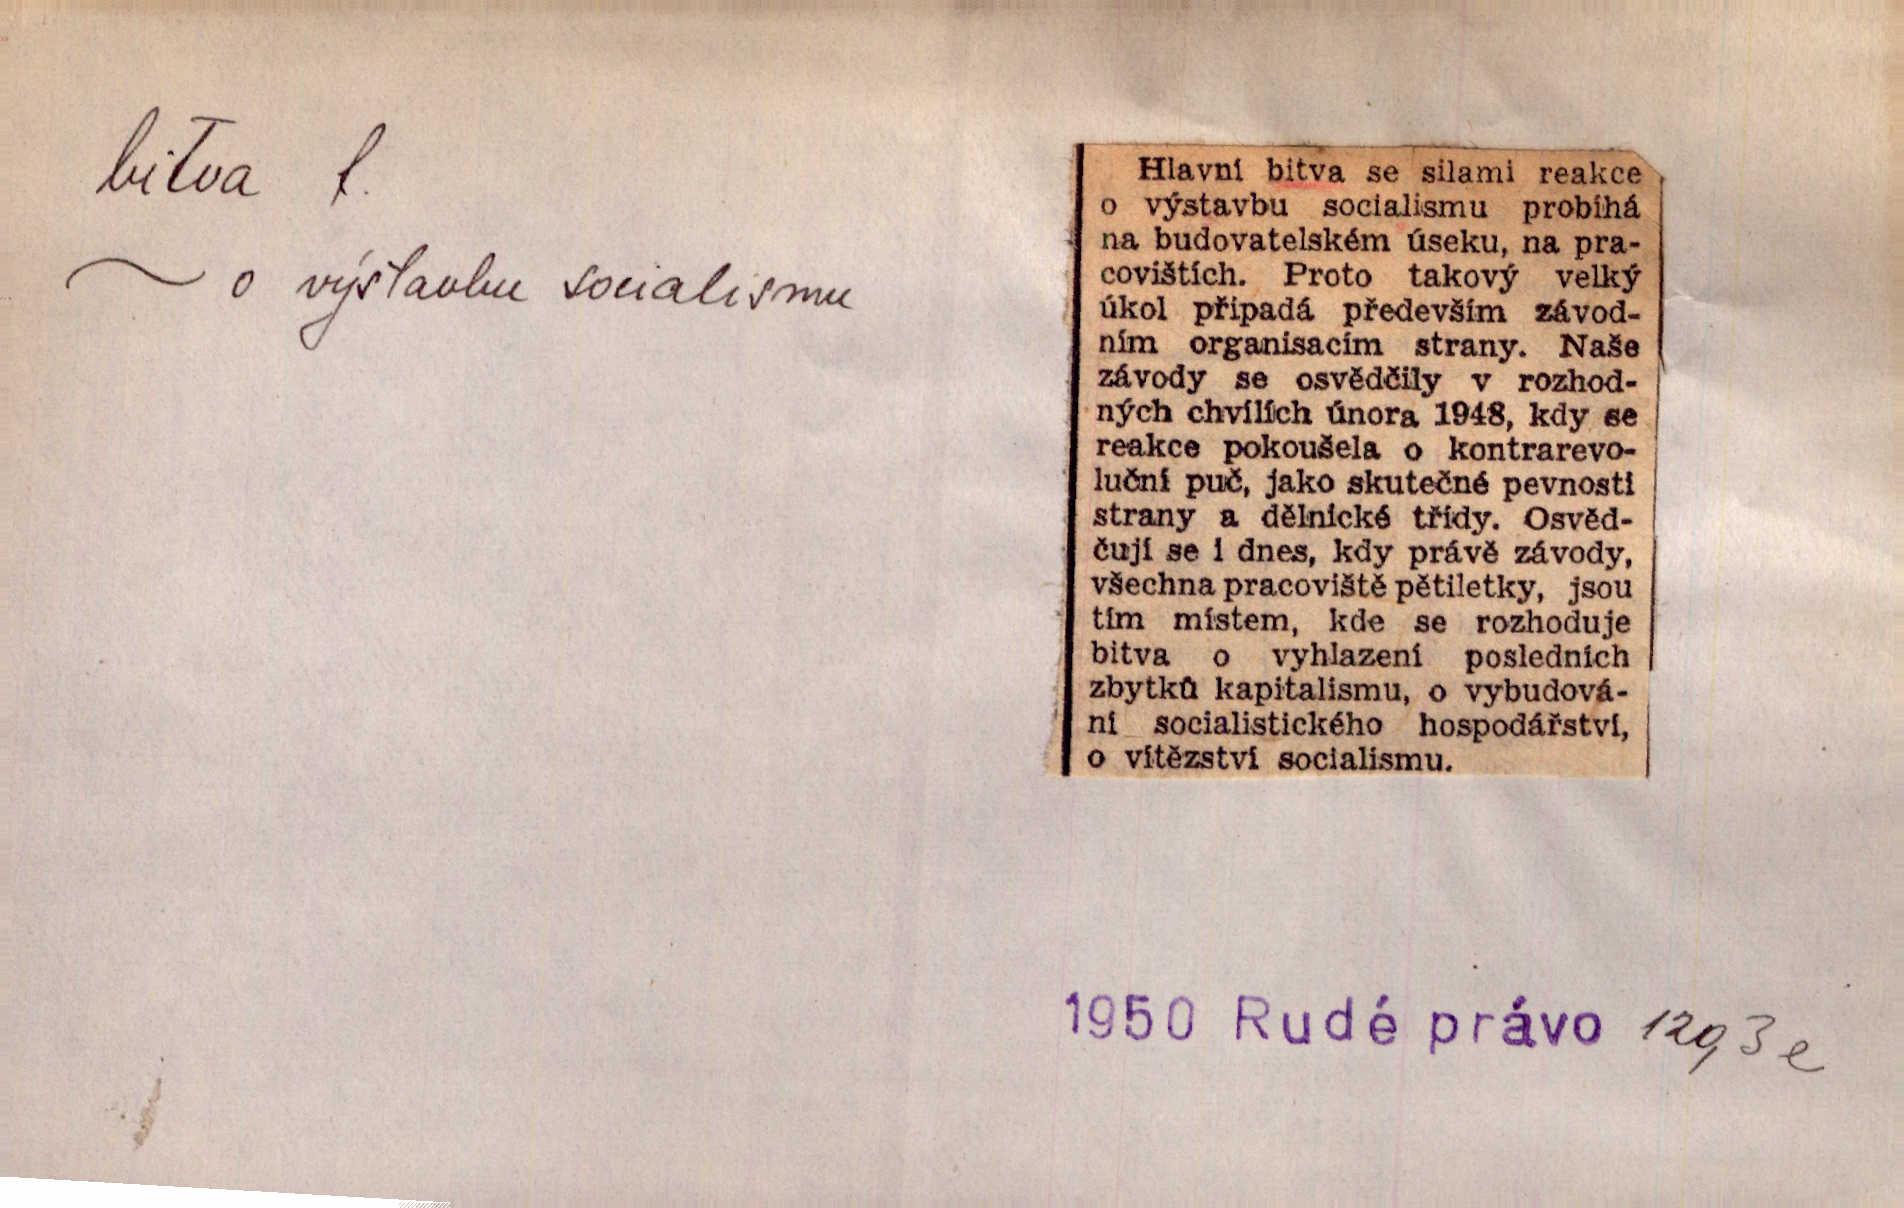 bitva f.
~ o výstavbu socialismu
Hlavní bitva se silami reakce
o výstavbu socialismu probíhá
na budovatelském úseku, na pra-
covištích. Proto takový velký
úkol připadá především závod-
ním organisacím strany. Naše
závody se osvědčily v rozhod-
ných chvílích února 1948, kdy se
reakce pokoušela o kontrarevo-
luční puč, jako skutečné pevnosti
strany a dělnické třídy. Osvěd-
čují se i dnes, kdy právě závody,
všechna pracoviště pětiletky, jsou
tím místem, kde se rozhoduje
bitva o vyhlazení posledních
zbytků kapitalismu, o vybudová-
ní socialistického hospodářství,
o vítězství socialismu.
1950 Rudé právo 129 3 e